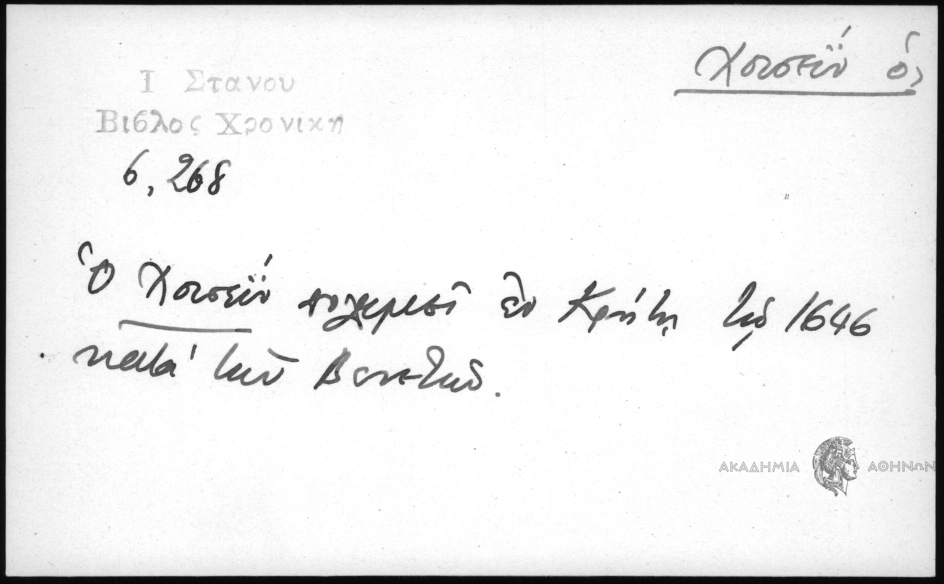 Χουσεΐν ὁ,
Ι Στανου
Βιβλος Χρονικη
6, 268
Ὁ Χουσεΐν πολεμεῖ ἐν Κρήτῃ τῷ 1646
κατὰ τῶν Βενετῶν.
ΑΚΑΔΗΜΙΑ ΑΘΗΝΩΝ